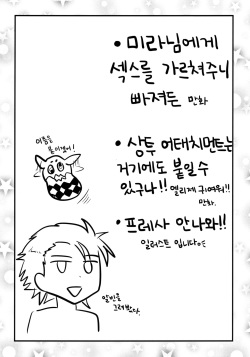 • 미라님에게
섹스를 가르쳐주니
빠져든 만화
이름을
붙이겠어!
• 상투 어태치먼트는
거기에도 붙일 수
있구나!! 엘리제 귀여워!!
만화.
• 프레사 안나와!!
일러스트 입니다
알반을
그려봤다.